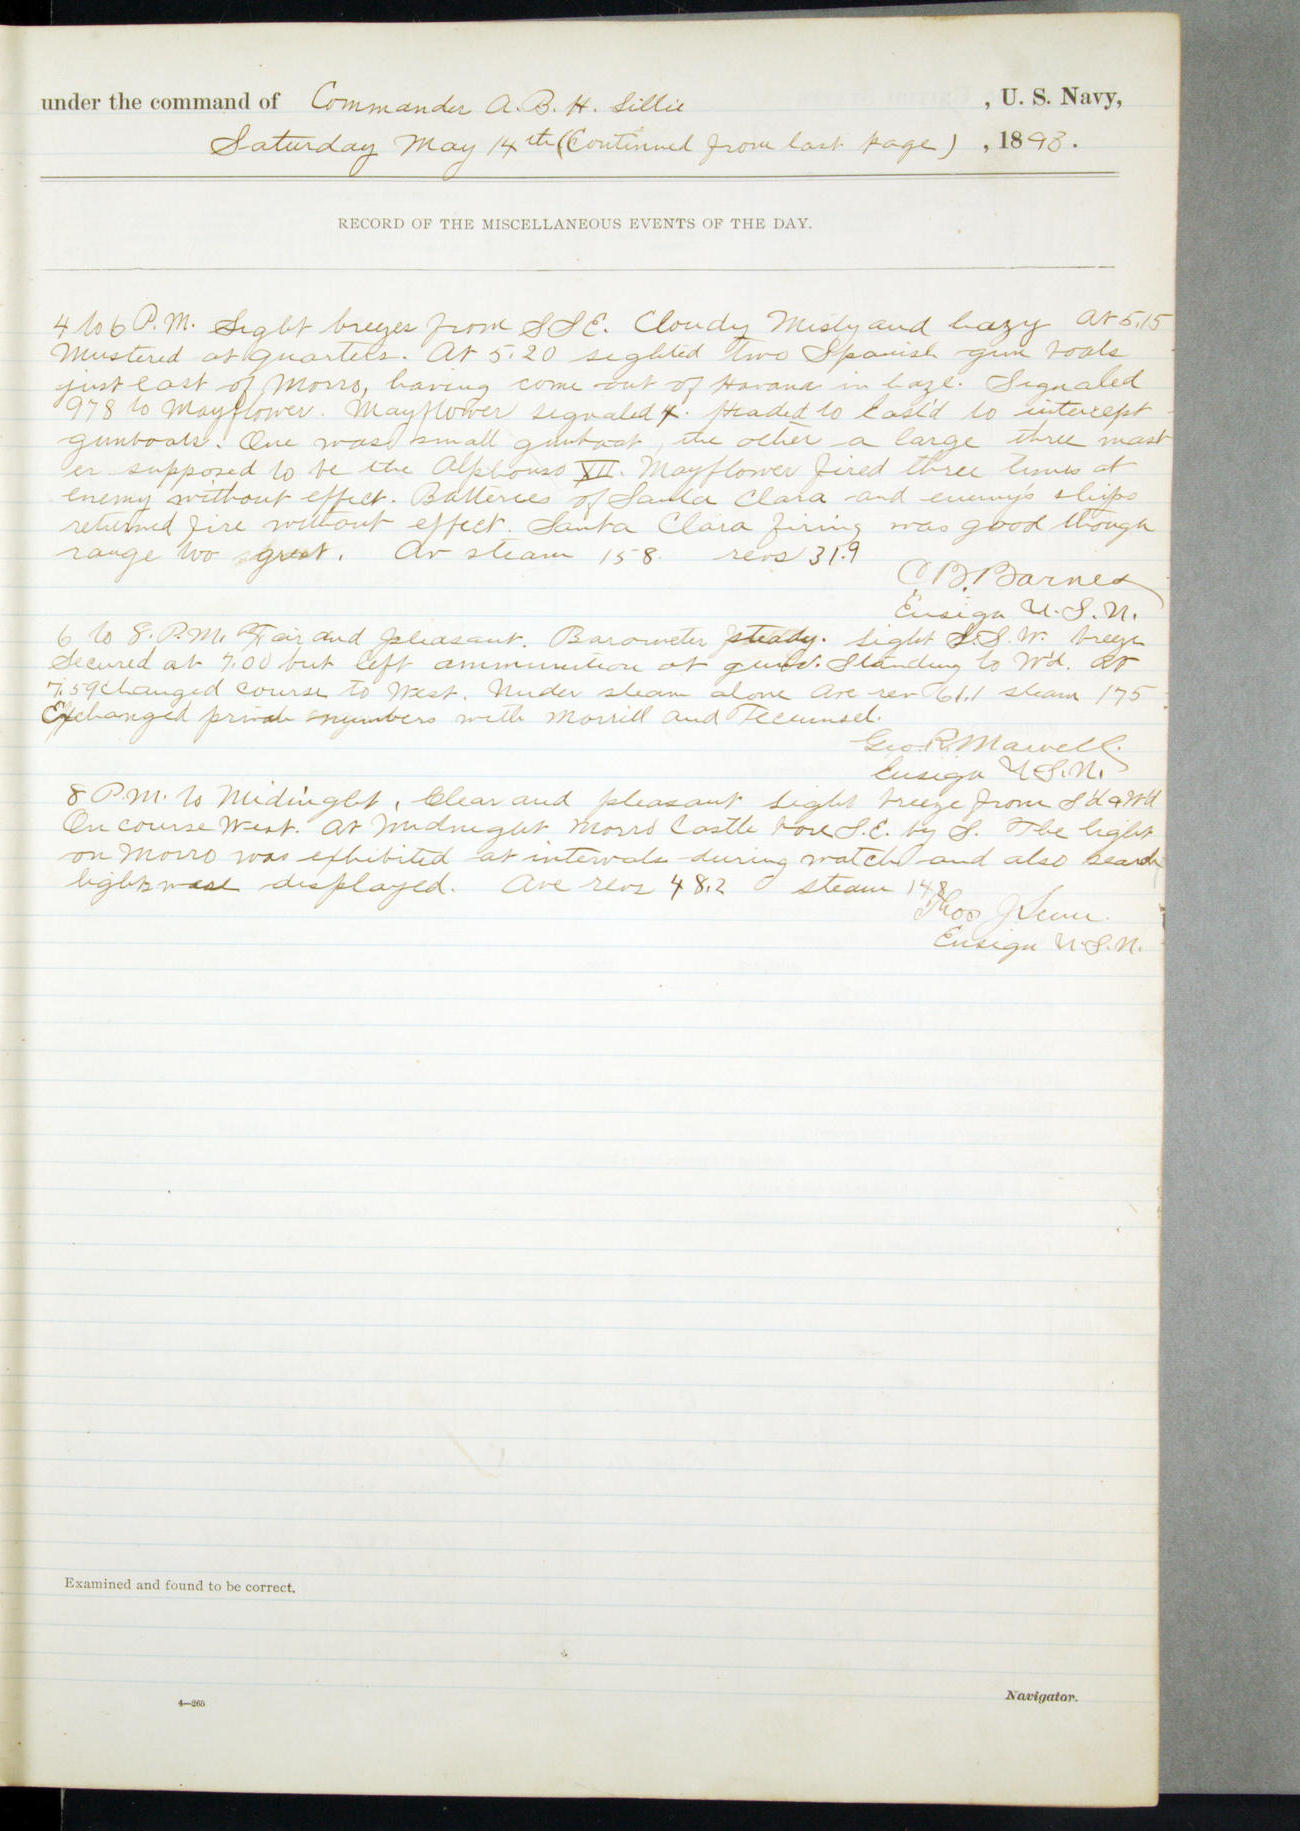 under the command of Commander A. B. H. Lillie , U. S. Navy,
Saturday May 14th (Continued from last page) , 1898.
RECORD OF THE MISCELLANEOUS EVENTS OF THE DAY.
4 to 6 P.M. Light breezes from SSE. Cloudy Misty and hazy At 5.15
Mustered at quarters. At 5.20 sighted two Spanish gun boats
just east of Morro, having come out of Havana in haze. Signaled
978 to Mayflower. Mayflower signaled 4. Headed to East'd to intercept
gunboats. One was small gunboat, the other a large three mast
er supposed to be the Alphonso XII. Mayflower fired three times at
enemy without effect. Batteries of Santa Clara and enemy's ships
returned fire without effect. Santa Clara firing was good though
range too great. Av steam 158. revs 31.9
C B. Barnes
Ensign U. S. N.
6 to 8. P.M. Fair and pleasant. Barometer steady. Light S.S.W. breeze
Secured at 7.00 but left ammunition at guns. Standing to W'd. At
7.59 changed course to West. Under steam alone Ave rev 61.1 steam 175
Exchanged private numbers with Morrill and Tecumseh.
Geo. R. Marvell.
Ensign U.S.N.
8 P.M. to Midnight. Clear and pleasant light breeze from S'd & W'd
On course West. At Midnight Morro Castle bore S.E. by S. The light
on Morro was exhibited at intervals during watch and also search
lights were displayed. Ave revs 48.2 steam 148
Thos J Senn.
Ensign U.S.N.
Examined and found to be correct.
4—265
Navigator.